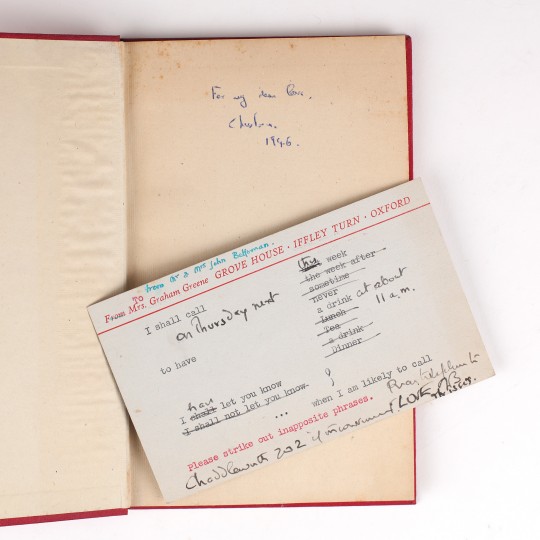 For my dear
Christmas.
1946.
From Mr & Mrs John Betjeman.
TO
From Mrs. Graham Greene GROVE HOUSE · IFFLEY TURN · OXFORD
I shall call
on Thursday next
this week
the week after
sometime
never
to have
a drink at about
11 a.m.
Lunch
Tea
a drink
Dinner
?
have
I shall let you know
I shall not let you know.
... when I am likely to call
Please strike out inapposite phrases.
Pray telephone to
Chaddleworth 202 if inconvenient. LOVE